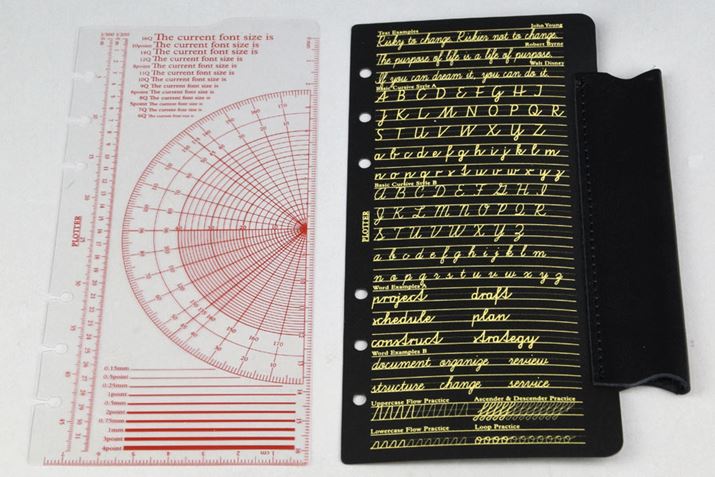 1/300 1/200
16Q The current font size is
10point The current font size is
14Q The current font size is
12Q The current font size is
8point The current font size is
11Q The current font size is
10Q The current font size is
9Q The current font size is
6point The current font size is
8Q The current font size is
5point The current font size is
7Q The current font size is
6Q The current font size is
PLOTTER
0.15mm
0.5point
0.25mm
1point
0.5mm
2point
0.75mm
1mm
3point
4point
Text Examples
John Young
Risky to change. Riskier not to change.
Robert Byrne
The purpose of life is a life of purpose.
Walt Disney
If you can dream it, you can do it.
Basic Cursive Style A
A B C D E F G H I
J K L M N O P Q R
S T U V W X Y Z
a b c d e f g h i j k l m
n o p q r s t u v w x y z
Basic Cursive Style B
A B C D E F G H I
J K L M N O P Q R
S T U V W X Y Z
a b c d e f g h i j k l m
n o p q r s t u v w x y z
PLOTTER
Word Examples A
project draft
schedule plan
construct strategy
Word Examples B
document organize review
structure change service
Uppercase Flow Practice
Ascender & Descender Practice
Lowercase Flow Practice
Loop Practice